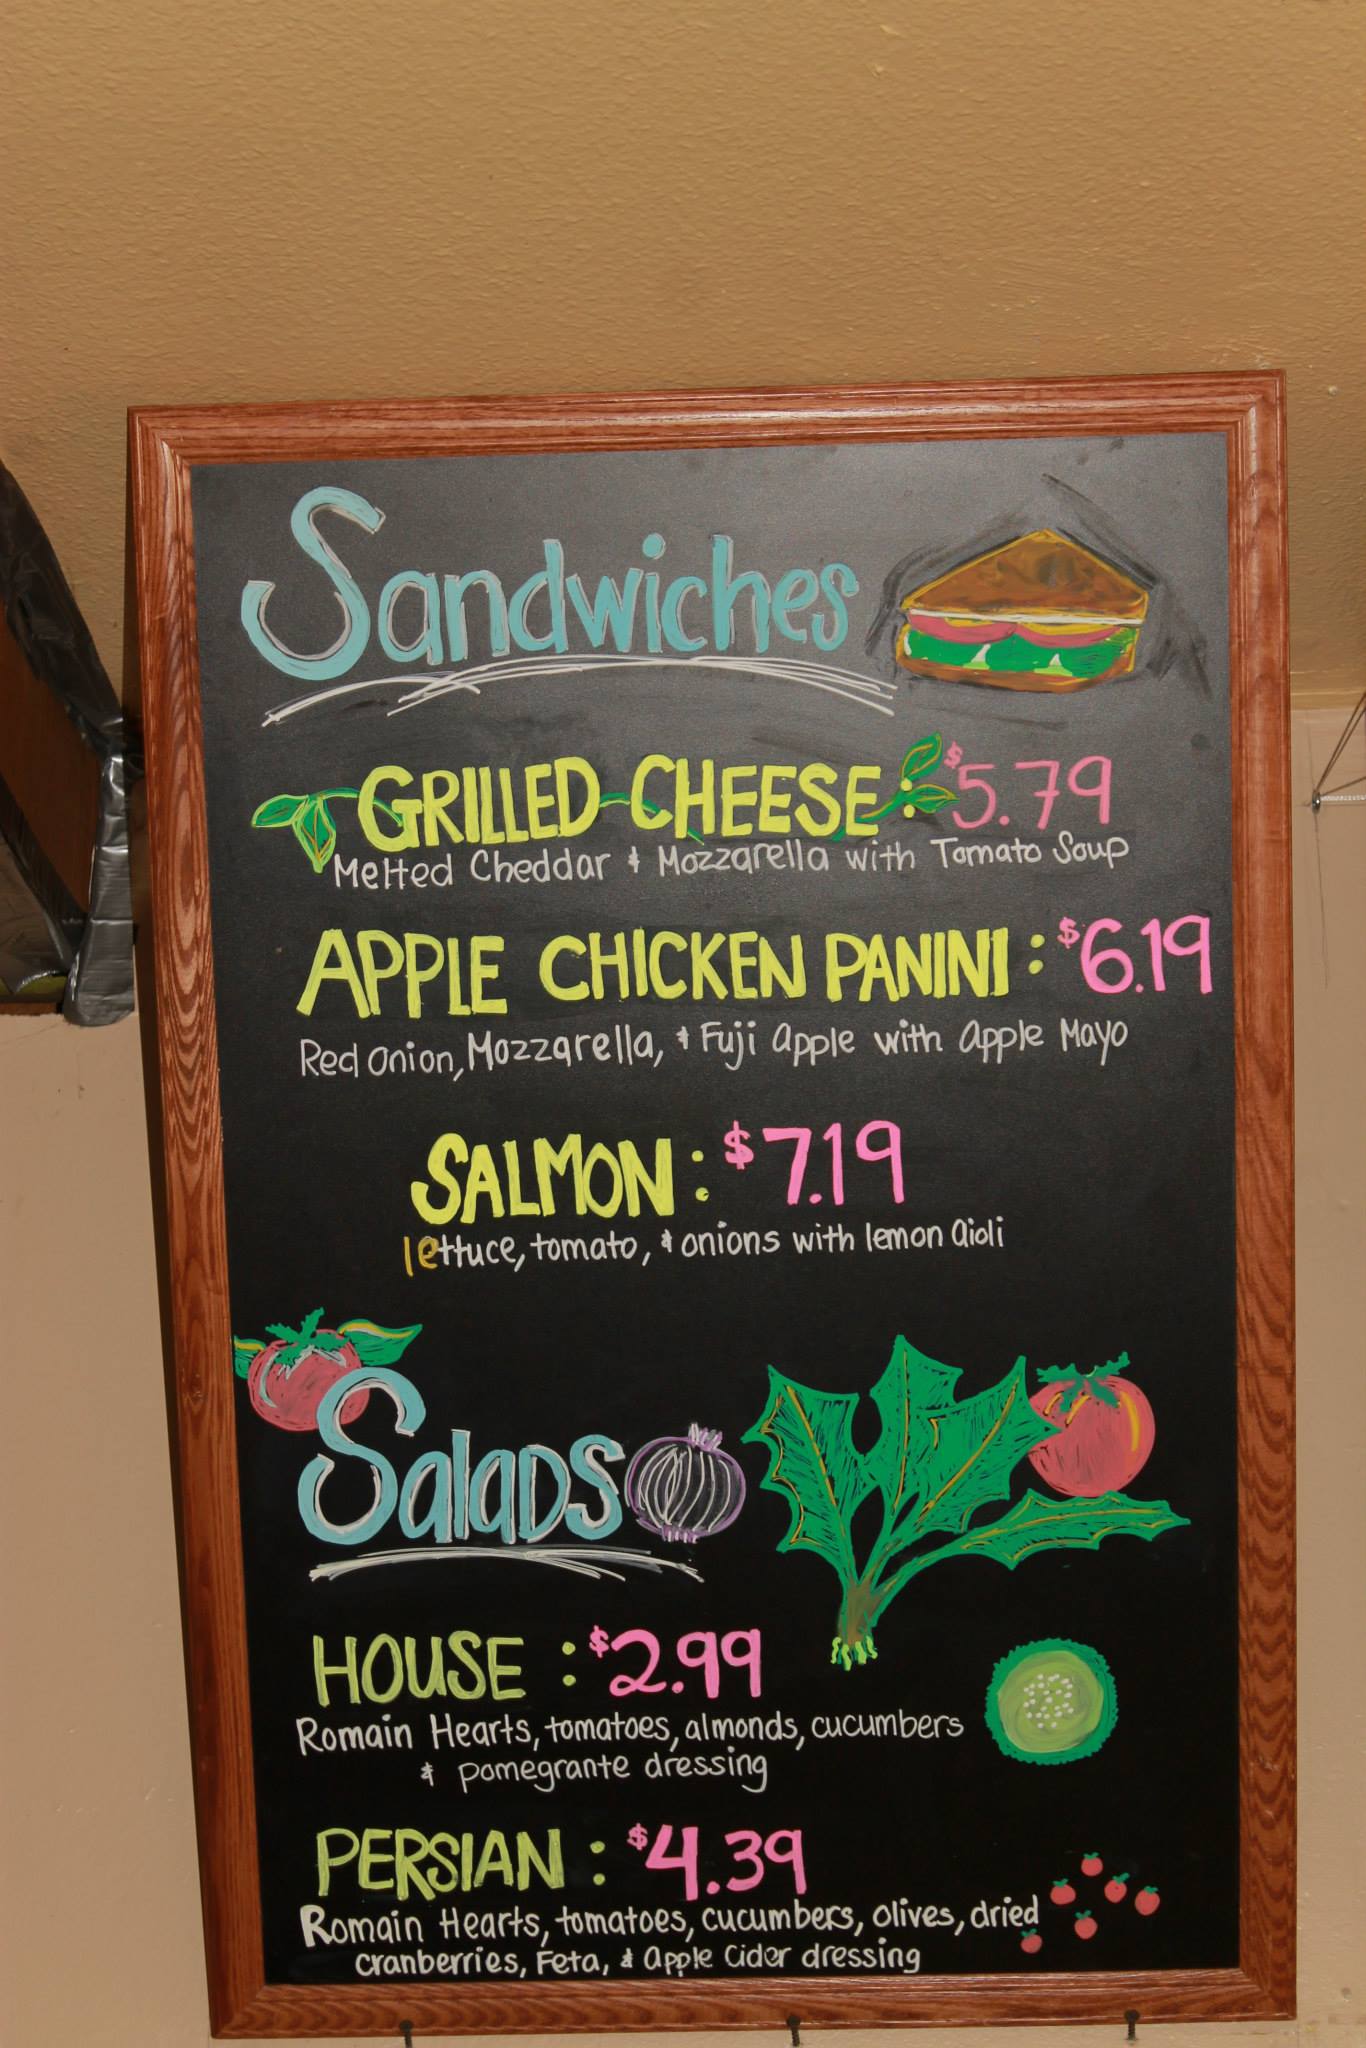 Sandwiches
GRILLED CHEESE: $5.79
Melted Cheddar & Mozzarella with Tomato Soup
APPLE CHICKEN PANINI: $6.19
Red Onion, Mozzarella, & Fuji Apple with Apple Mayo
SALMON: $7.19
lettuce, tomato, & onions with lemon aioli
Salads
HOUSE: $2.99
Romain Hearts, tomatoes, almonds, cucumbers
& pomegrante dressing
PERSIAN: $4.39
Romain Hearts, tomatoes, cucumbers, olives, dried
cranberries, Feta, & Apple Cider dressing